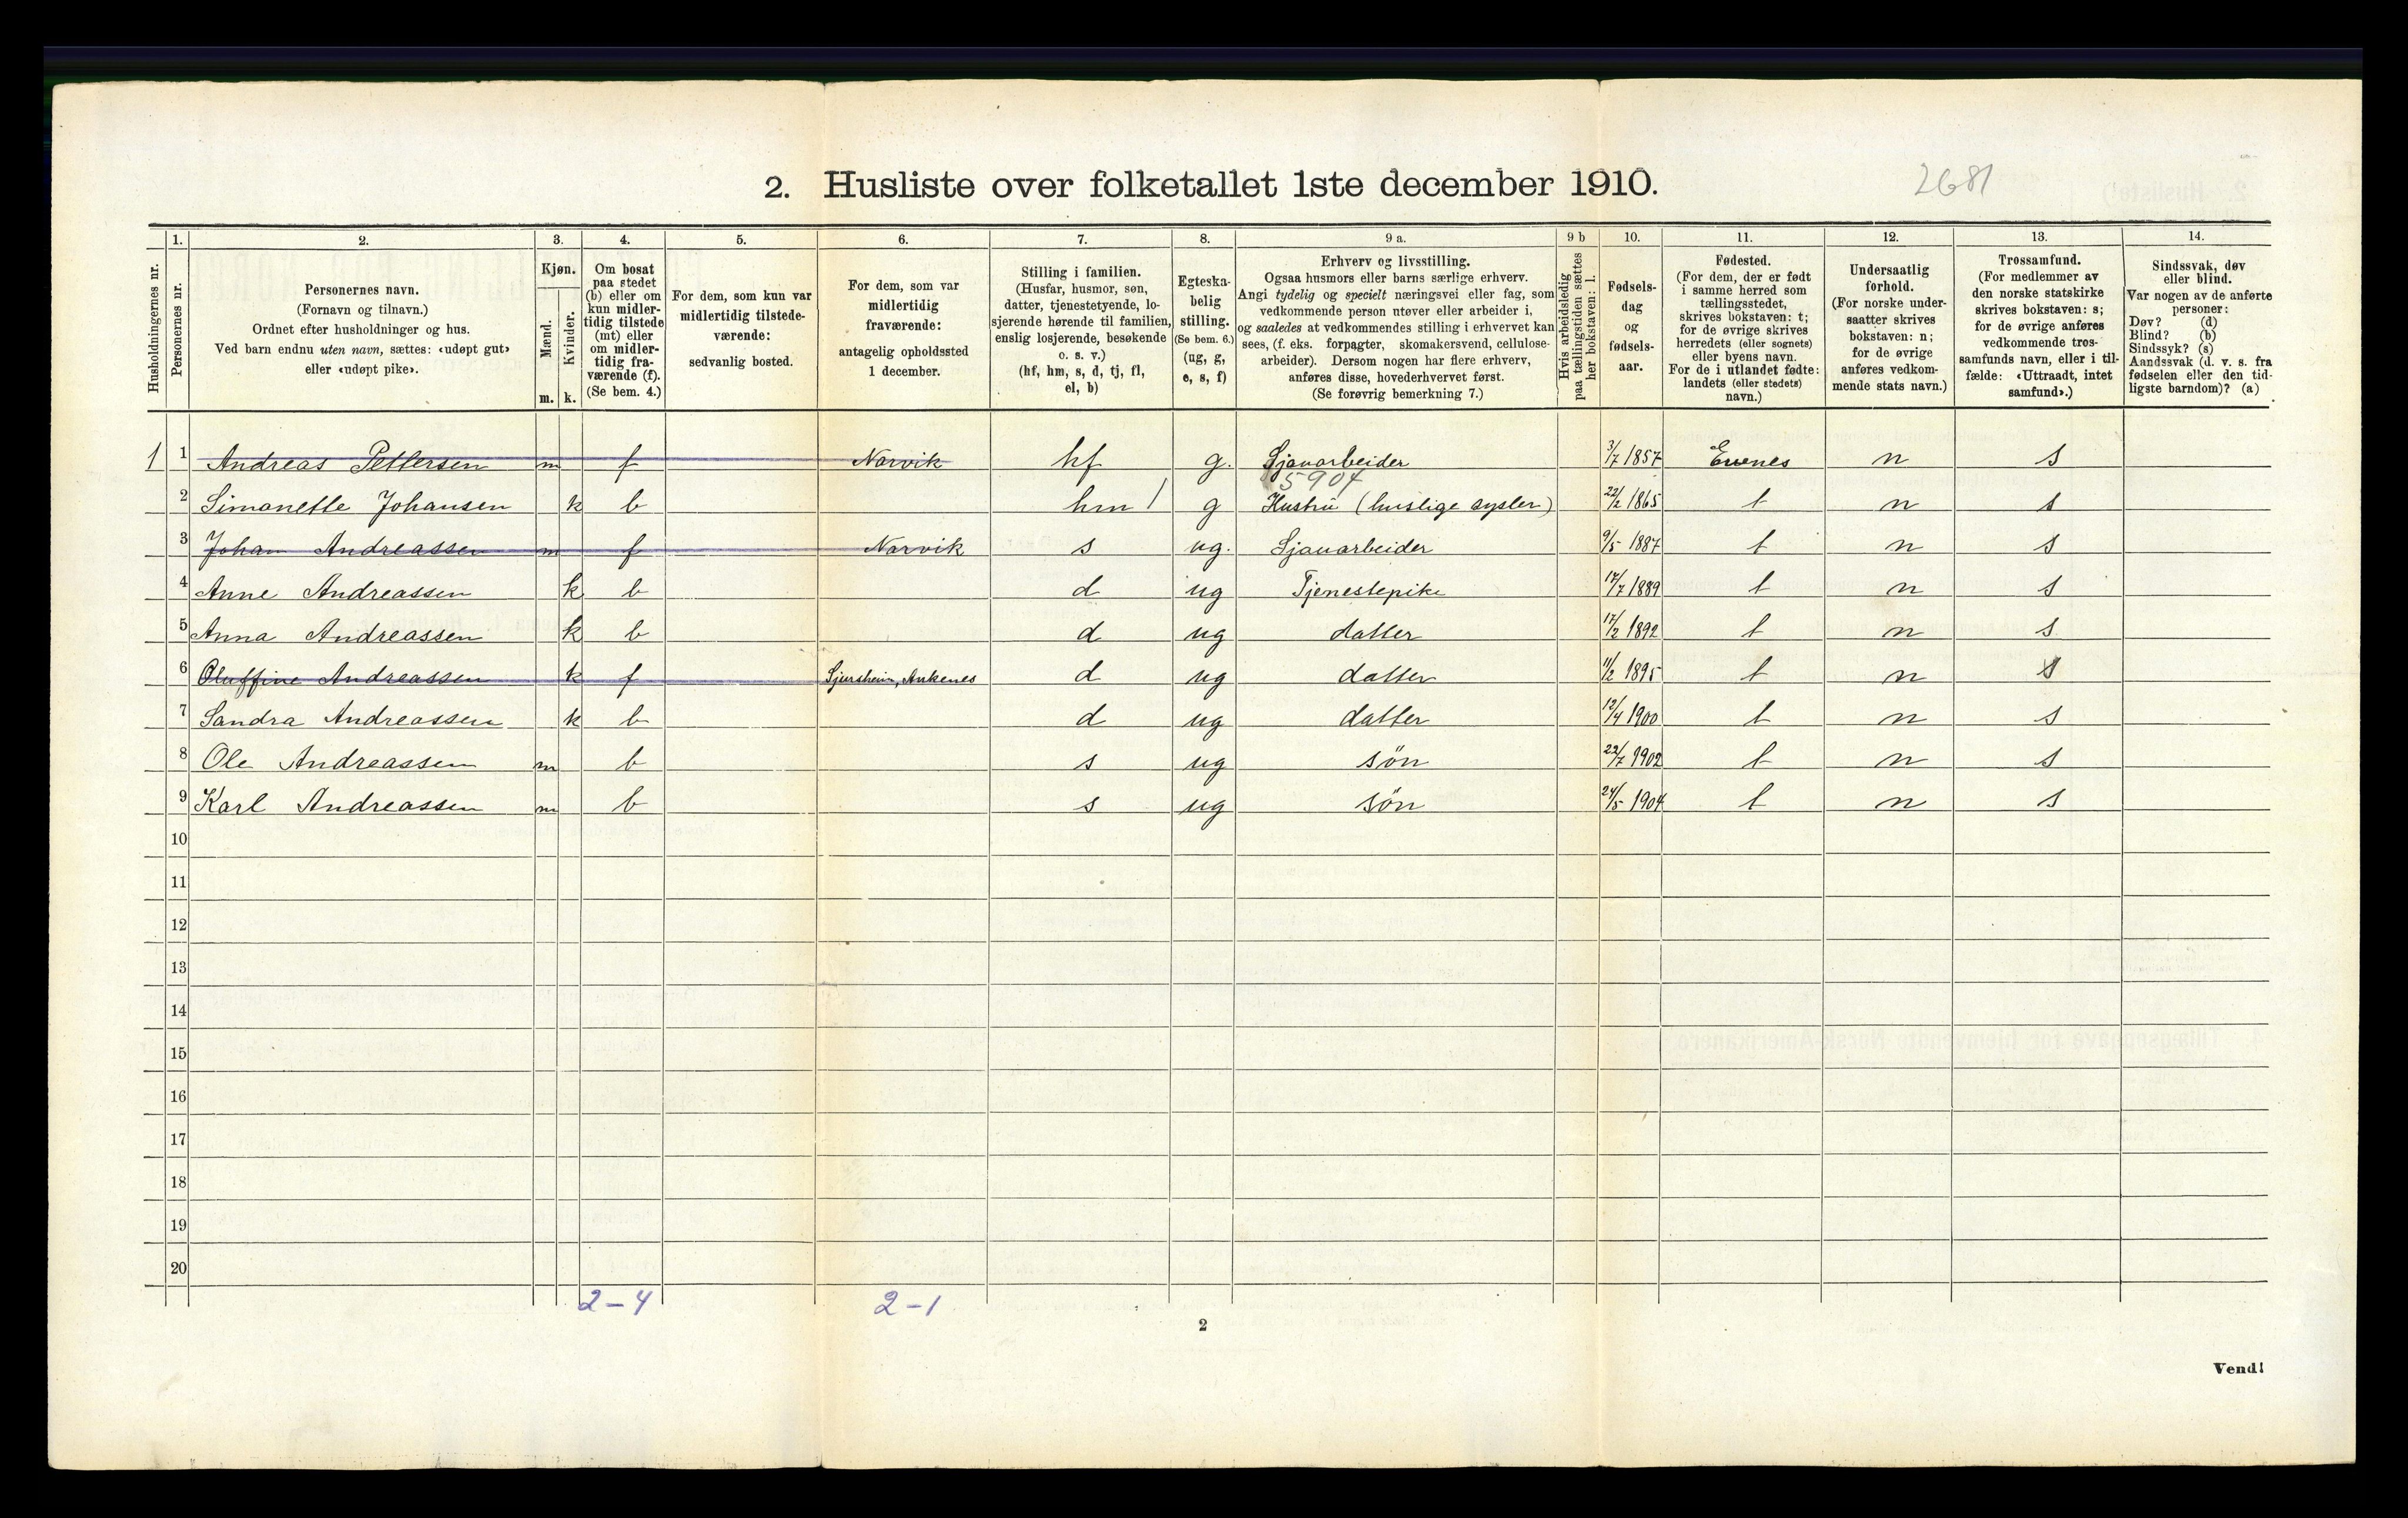 2. Husliste over folketallet 1ste december 1910.
2681
Husholdningernes nr.
1.
Personernes nr.
2.
Personernes navn.
(Fornavn og tilnavn.)
Ordnet efter husholdninger og hus.
Ved barn endnu uten navn, sættes: «udøpt gut»
eller «udøpt pike».
3.
Kjøn.
Mænd.
Kvinder.
m. k.
4.
Om bosat
paa stedet
(b) eller om
kun midler-
tidig tilstede
(mt) eller
om midler-
tidig fra-
værende (f).
(Se bem. 4.)
5.
For dem, som kun var
midlertidig tilstede-
værende:
sedvanlig bosted.
6.
For dem, som var
midlertidig
fraværende:
antagelig opholdssted
1 december.
7.
Stilling i familien.
(Husfar, husmor, søn,
datter, tjenestetyende, lo-
sjerende hørende til familien,
enslig losjerende, besøkende
o. s. v.)
(hf, hm, s, d, tj, fl,
el, b)
8.
Egteska-
belig
stilling.
(Se bem. 6.)
(ug, g,
e, s, f)
9 a.
Erhverv og livsstilling.
Ogsaa husmors eller barns særlige erhverv.
Angi tydelig og specielt næringsvei eller fag, som
vedkommende person utøver eller arbeider i,
og saaledes at vedkommendes stilling i erhvervet kan
sees, (f. eks. forpagter, skomakersvend, cellulose-
arbeider). Dersom nogen har flere erhverv,
anføres disse, hovederhvervet først.
(Se forøvrig bemerkning 7.)
9 b
Hvis arbeidsledig
paa tællingstiden sættes
her bokstaven: l.
10.
Fødsels-
dag
og
fødsels-
aar.
11.
Fødested.
(For dem, der er født
i samme herred som
tællingsstedet,
skrives bokstaven: t;
for de øvrige skrives
herredets (eller sognets)
eller byens navn.
For de i utlandet fødte:
landets (eller stedets)
navn.)
12.
Undersaatlig
forhold.
(For norske under-
saatter skrives
bokstaven: n;
for de øvrige
anføres vedkom-
mende stats navn.)
13.
Trossamfund.
(For medlemmer av
den norske statskirke
skrives bokstaven: s;
for de øvrige anføres
vedkommende tros-
samfunds navn, eller i til-
fælde: «Uttraadt, intet
samfund».)
14.
Sindssvak, døv
eller blind.
Var nogen av de anførte
personer:
Døv? (d)
Blind? (b)
Sindssyk? (s)
Aandssvak (d. v. s. fra
fødselen eller den tid-
ligste barndom)? (a)
1 1 Andreas Pettersen m f Narvik hf g. Sjauarbeider 3/7 1857 Evenes n s
5904
2 Simonette Johansen k b hm 1 g Hustru (huslige sysler) 22/2 1865 t n s
3 Johan Andreassen m f Narvik s ug. Sjauarbeider 9/5 1887 t n s
4 Anne Andreassen k b d ug Tjenestepike 17/7 1889 t n s
5 Anna Andreassen k b d ug datter 17/2 1892 t n s
6 Oluffine Andreassen k f Ankenes d ug datter 11/2 1895 t n s
7 Sandra Andreassen k b d ug datter 12/4 1900 t n s
8 Ole Andreassen m b s ug sön 22/7 1902 t n s
9 Karl Andreassen m b s ug sön 24/5 1904 t n s
10
11
12
13
14
15
16
17
18
19
20
2-4 2-1
2
Vend!